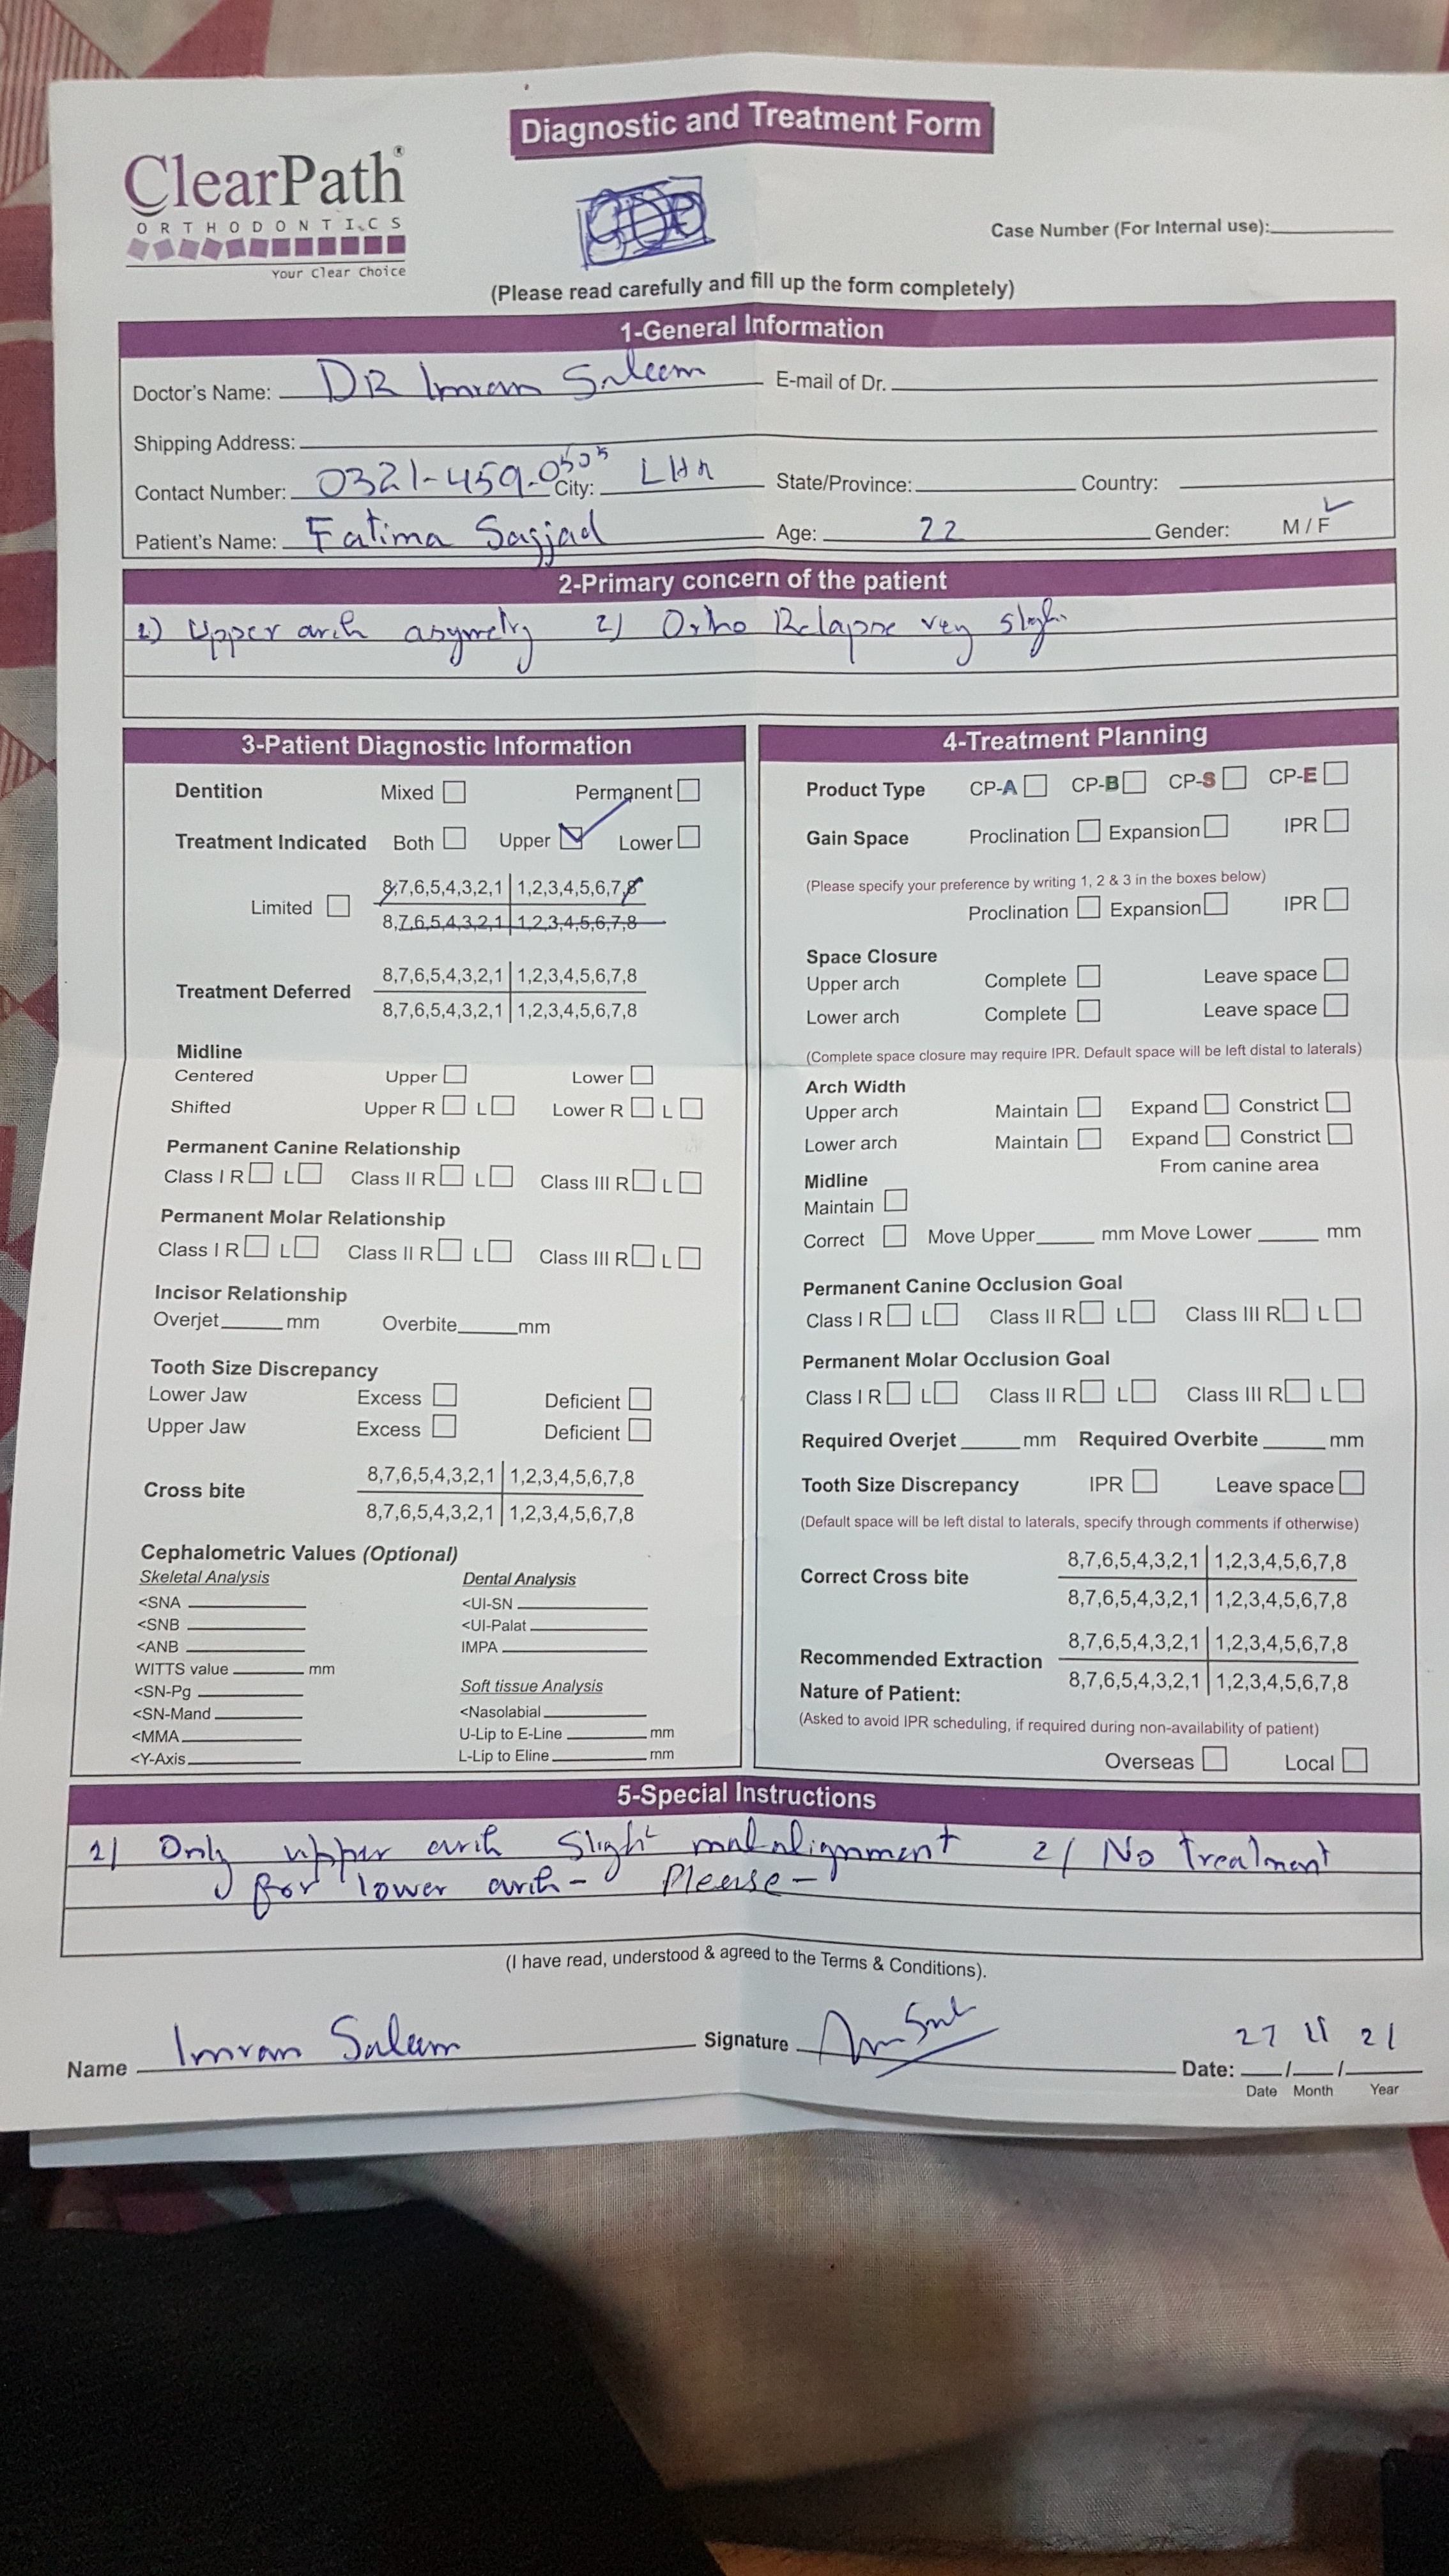 ClearPath®
ORTHODONTICS
Your Clear Choice
Diagnostic and Treatment Form
(Please read carefully and fill up the form completely)
Case Number (For Internal use):
1-General Information
Doctor's Name: DR Imran Saleem E-mail of Dr.
Shipping Address:
Contact Number: 0321-459- City: LHR State/Province: Country:
Patient's Name: Fatima Sajjad Age: 22 Gender: M / F
2-Primary concern of the patient
1) Upper arch asymetry 2) Ortho Relapse very slight
3-Patient Diagnostic Information
Dentition Mixed Permanent
Treatment Indicated Both Upper Lower
Limited
8,7,6,5,4,3,2,1 | 1,2,3,4,5,6,7,8
8,7,6,5,4,3,2,1 | 1,2,3,4,5,6,7,8
Treatment Deferred
8,7,6,5,4,3,2,1 | 1,2,3,4,5,6,7,8
8,7,6,5,4,3,2,1 | 1,2,3,4,5,6,7,8
Midline Upper Lower
Centered
Shifted Upper R L Lower R L
Permanent Canine Relationship
Class I R L Class II R L Class III R L
Permanent Molar Relationship
Class I R L Class II R L Class III R L
Incisor Relationship
Overjet mm Overbite mm
Tooth Size Discrepancy
Lower Jaw Excess Deficient
Upper Jaw Excess Deficient
Cross bite
8,7,6,5,4,3,2,1 | 1,2,3,4,5,6,7,8
8,7,6,5,4,3,2,1 | 1,2,3,4,5,6,7,8
Cephalometric Values (Optional)
Skeletal Analysis Dental Analysis
<SNA <UI-SN
<SNB <UI-Palat
<ANB IMPA
WITTS value mm
<SN-Pg Soft tissue Analysis
<SN-Mand <Nasolabial
<MMA U-Lip to E-Line mm
<Y-Axis L-Lip to Eline mm
4-Treatment Planning
Product Type CP-A CP-B CP-S CP-E
Gain Space Proclination Expansion IPR
(Please specify your preference by writing 1, 2 & 3 in the boxes below)
Proclination Expansion IPR
Space Closure
Upper arch Complete Leave space
Lower arch Complete Leave space
(Complete space closure may require IPR. Default space will be left distal to laterals)
Arch Width
Upper arch Maintain Expand Constrict
Lower arch Maintain Expand Constrict
From canine area
Midline
Maintain
Correct Move Upper mm Move Lower mm
Permanent Canine Occlusion Goal
Class I R L Class II R L Class III R L
Permanent Molar Occlusion Goal
Class I R L Class II R L Class III R L
Required Overjet mm Required Overbite mm
Tooth Size Discrepancy IPR Leave space
(Default space will be left distal to laterals, specify through comments if otherwise)
Correct Cross bite
8,7,6,5,4,3,2,1 | 1,2,3,4,5,6,7,8
8,7,6,5,4,3,2,1 | 1,2,3,4,5,6,7,8
Recommended Extraction
8,7,6,5,4,3,2,1 | 1,2,3,4,5,6,7,8
8,7,6,5,4,3,2,1 | 1,2,3,4,5,6,7,8
Nature of Patient:
(Asked to avoid IPR scheduling, if required during non-availability of patient)
Overseas Local
5-Special Instructions
1/ Only upper arch slight mal-alignment 2/ No treatment
for lower arch - Please -
(I have read, understood & agreed to the Terms & Conditions).
Name Imran Saleem Signature Date: 27 / 11 / 21
Date Month Year